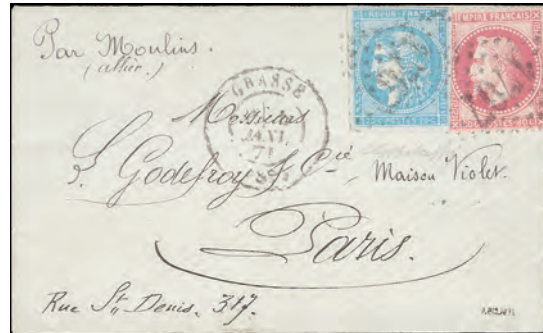 Par Moulins.
(allier.)
REPUB. FRANC.
EMPIRE FRANÇAIS
GRASSE
JANV.
71
Messieurs
Godefroy & Cie
Maison Violet.
Paris.
Rue St Denis. 317.